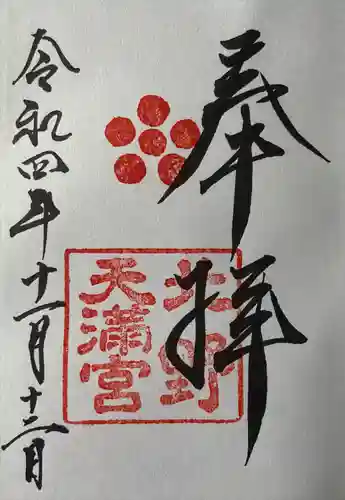 奉拝
北野
天満宮
令和四年十一月十二日